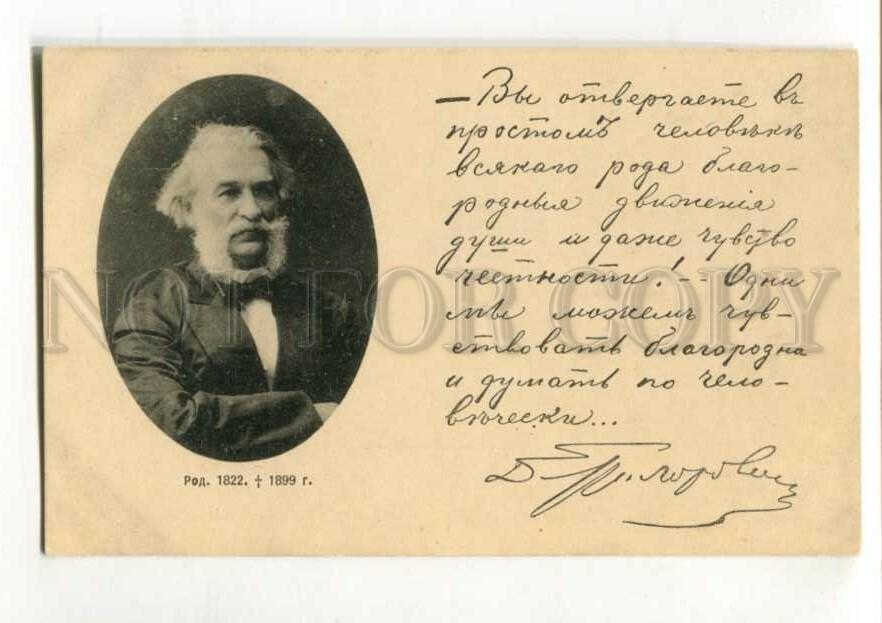 — Вы отвергаете въ
простомъ человѣкѣ
всякаго рода благо-
родныя движенія
души и даже чувство
честности! -- Одни
мы можемъ чув-
ствовать благородно
и думать по чело-
вѣчески...
Д Григорович
Род. 1822. † 1899 г.
NOT FOR COPY